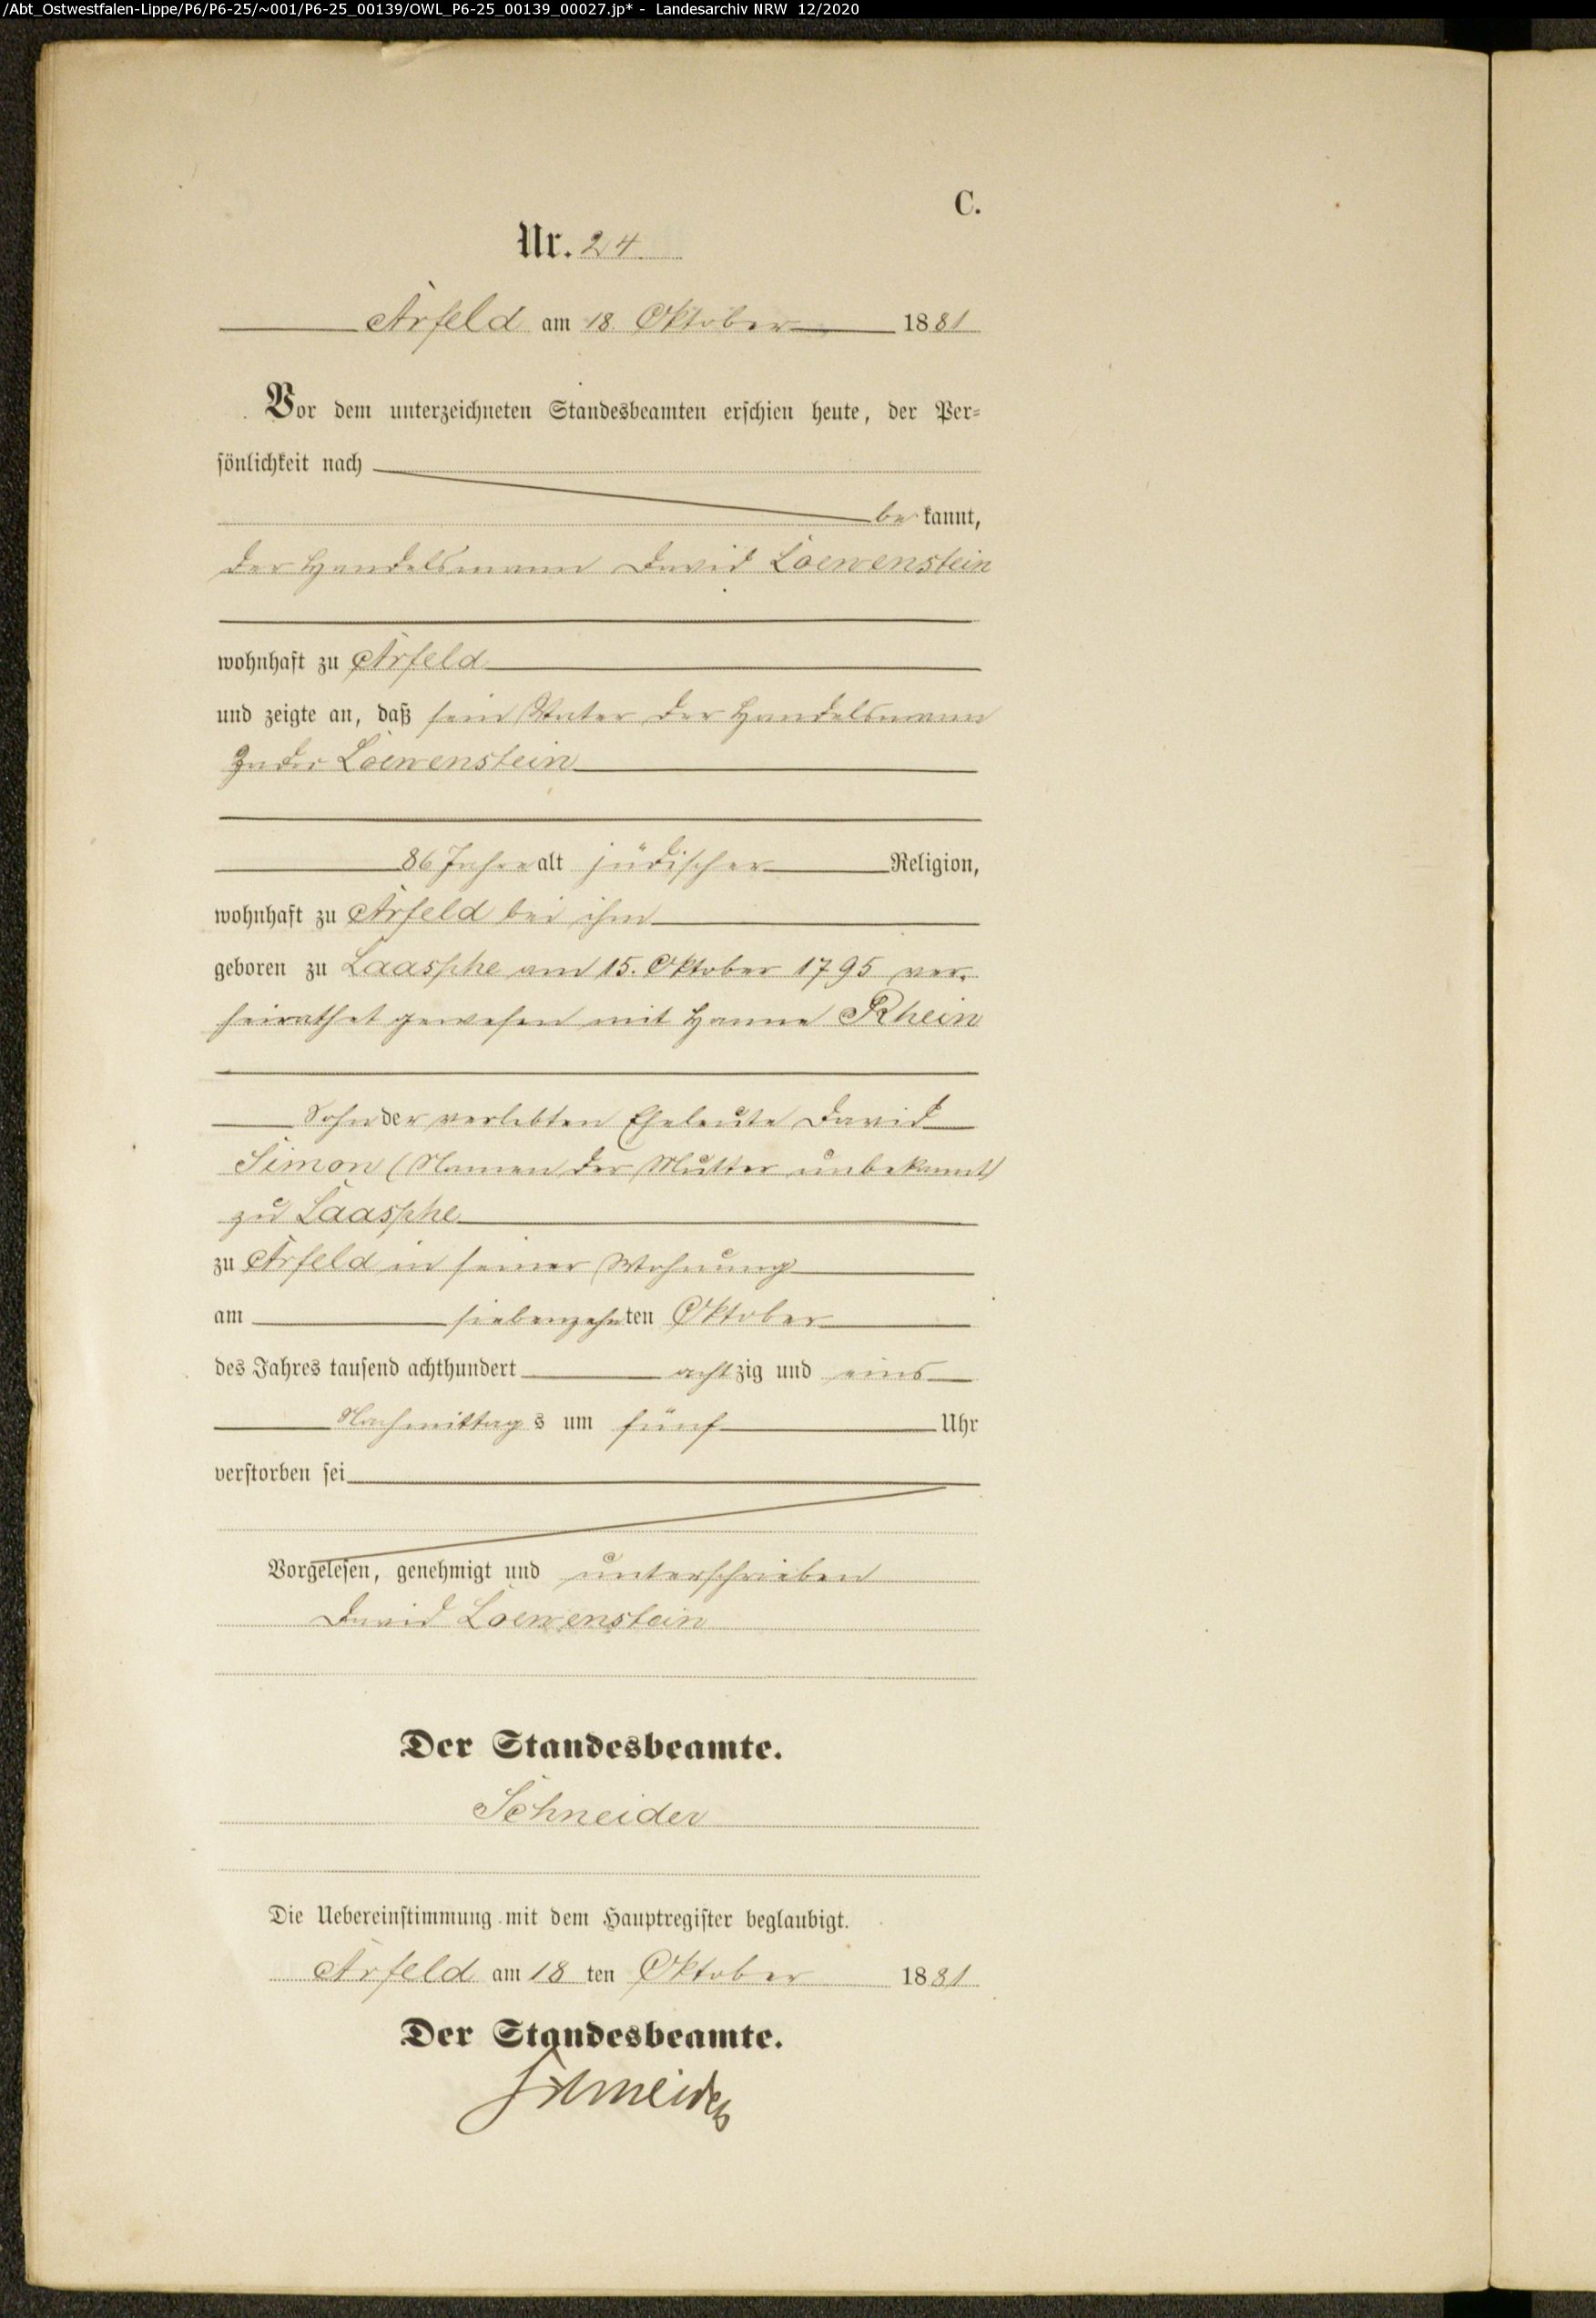 /Abt_Ostwestfalen-Lippe/P6/P6-25/~001/P6-25_00139/OWL_P6-25_00139_00027.jp* - Landesarchiv NRW 12/2020
C.
Nr. 24
Arfeld am 18. Oktober 1881
Vor dem unterzeichneten Standesbeamten erschien heute, der Per-
sönlichkeit nach
be kannt,
der Handelsmann David Loewenstein
wohnhaft zu Arfeld
und zeigte an, daß sein Vater der Handelsmann
Loewenstein
86 Jahre alt jüdischer Religion,
wohnhaft zu Arfeld bei ihm
geboren zu Laasphe am 15. Oktober 1795 ver-
heirathet gewesen mit Hanne Rhein
Sohn der verlebten Eheleute David
Simon (Namen der Mutter unbekannt)
zu Laasphe
zu Arfeld in seiner Wohnung
am siebenzehnten Oktober
des Jahres tausend achthundert achtzig und eins
Nachmittags um fünf Uhr
verstorben sei
Vorgelesen, genehmigt und unterschrieben
David Loewenstein
Der Standesbeamte.
Schneider
Die Uebereinstimmung mit dem Hauptregister beglaubigt.
Arfeld am 18 ten Oktober 1881
Der Standesbeamte.
Schneider